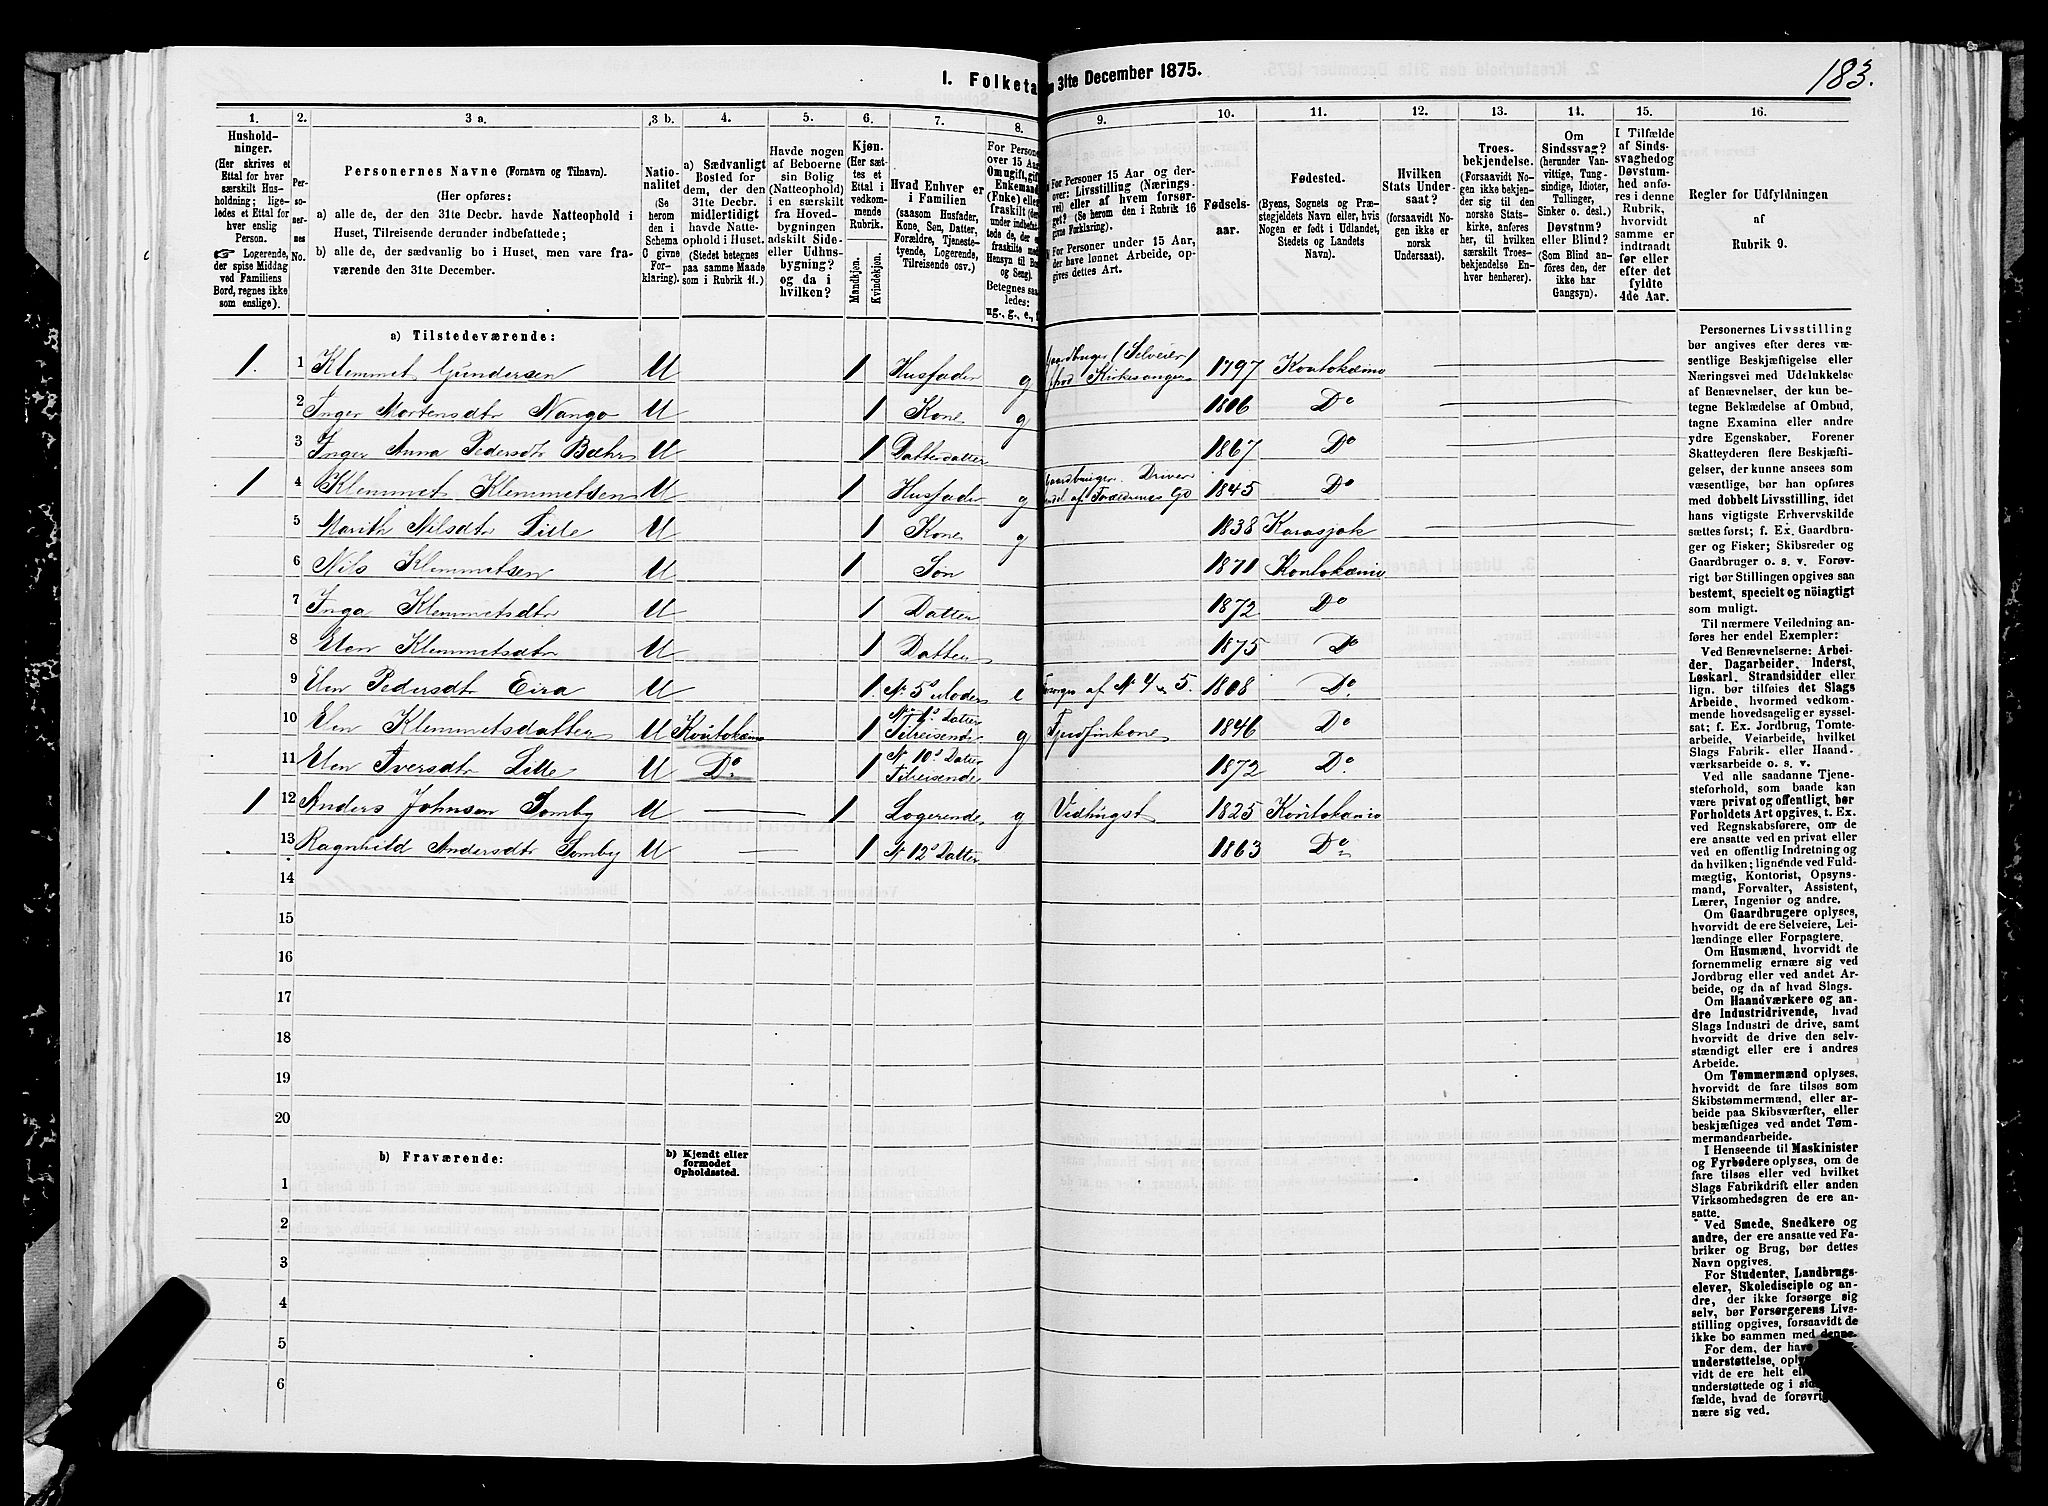 183.
I. Folketa
n 31te December 1875.
1. 2. 3 a. 3 b. 4. 5. 6. 7. 8. 9. 10. 11. 12. 13. 14. 15. 16.
Hushold-
ninger.
(Her skrives et
Ettal for hver
særskilt Hus-
holdning; lige-
ledes et Ettal for
hver enslig
Person.
☞ Logerende,
der spise Middag
ved Familiens
Bord, regnes ikke
som enslige).
Per-
so-
ner-
nes
No.
Personernes Navne (Fornavn og Tilnavn).
(Her opføres:
a) alle de, der den 31te Decbr. havde Natteophold i
Huset, Tilreisende derunder indbefattede;
b) alle de, der sædvanlig bo i Huset, men vare fra-
værende den 31te December.
Natio-
nalitet
(Se
herom
den i
Schema
G givne
For-
klaring).
a) Sædvanligt
Bosted for
dem, der den
31te Decbr.
midlertidigt
havde Natte-
ophold i Huset.
(Stedet betegnes
paa samme Maade
som i Rubrik 11.)
Havde nogen
af Beboerne
sin Bolig
(Natteophold)
i en særskilt
fra Hoved-
bygningen
adskilt Side-
eller Udhus-
bygning?
og da i
hvilken?
Kjøn.
(Her sæt-
tes et
Ettal i
vedkom-
mende
Rubrik.
Mandkjøn.
Kvindekjøn.
Hvad Enhver er
i Familien
(saasom Husfader,
Kone, Søn, Datter,
Forældre, Tjeneste-
tyende, Logerende,
Tilreisende osv.)
For Personer
over 15 Aar
Om ugift, gift
Enkemand
(Enke) eller
fraskilt (der-
under indbefat-
tede de, der
fraskilte med
Hensyn til Bord
og Seng).
Betegnes saa-
ledes:
ug., g., e., f.
For Personer 15 Aar og der-
over: Livsstilling (Nærings-
vei) eller af hvem forsør-
get? (Se herom den i Rubrik 16
givne Forklaring).
For Personer under 15 Aar,
der have lønnet Arbeide, op-
gives dettes Art.
Fødsels-
aar.
Fødested.
(Byens, Sognets og Præ-
stegjeldets Navn eller, hvis
Nogen er født i Udlandet,
Stedets og Landets
Navn).
Hvilken
Stats Under-
saat?
(forsaavidt No-
gen ikke er
norsk
Undersaat).
Troes-
bekjendelse.
(Forsaavidt No-
gen ikke bekjen-
der sig til den
norske Stats-
kirke, anføres
her, til hvilken
særskilt Troes-
bekjendelse En-
hver henhører).
Om
Sindssvag?
(herunder Van-
vittige, Tung-
sindige, Idioter,
Tullinger,
Sinker o. desl.)
Døvstum?
eller Blind?
(Som Blind an-
føres den, der
ikke har
Gangsyn).
I Tilfælde
af Sinds-
svaghed og
Døvstum-
hed anfø-
res i denne
Rubrik,
hvorvidt
samme er
indtraadt
før eller
efter det
fyldte
4de Aar.
Regler for Udfyldningen
af
Rubrik 9.
a) Tilstedeværende:
1. 1 Klemmet Gundersen U 1 Husfader g Gaardbruger (Selveier) forhv. Kirkesanger 1797 Koutokæino
2 Inger Mortensdtr Nango U 1 Kone g 1806 Do
3 Inger Anna Pedersdtr Bæhr U 1 Datterdatter 1867 Do
1 4 Klemmet Klemmetsen U 1 Husfader g Gaardbruger. Driver endel af Faderens Gd 1845 Do
5 Marith Nilsdtr Lille U 1 Kone g 1838 Karasjok
6 Nils Klemmetsen U 1 Søn 1871 Koutokæino
7 Inga Klemmetsdtr U 1 Datter 1872 Do
8 Elen Klemmetsdtr U 1 Datter 1875 Do
9 Elen Pedersdtr Eira U 1. No 5s Moder e Forsørges af No 4 & 5. 1808 Do.
10 Elen Klemmetsdatter U Koutokæino 1 No 1s. Datter Tilreisende g Fjeldfinkone 1846 Do
11 Elen Iversdtr Lille U Do 1 No 10s Datter Tilreisende 1872 Do.
1 12 Anders Johnsen Somby U 1 Logerende g Vidhugst 1825 Koutokæino
13 Ragnhild Andersdtr Somby U 1 No 12s Datter 1863 Do
14
15
16
17
18
19
20
b) Fraværende:
b) Kjendt eller
formodet
Opholdssted.
1
2
3
4
5
6
Personernes Livsstilling
bør angives efter deres væ-
sentlige Beskjæftigelse eller
Næringsvei med Udelukkelse
af Benævnelser, der kun be-
tegne Beklædelse af Ombud,
tagne Examina eller andre
ydre Egenskaber. Forener
Skatteyderen flere Beskjæfti-
gelser, der kunne ansees som
væsentlige, bør han opføres
med dobbelt Livsstilling, idet
hans vigtigste Erhvervskilde
sættes først; f. Ex. Gaardbru-
ger og Fisker; Skibsreder og
Gaardbruger o. s. v. Forøv-
rigt bør Stillingen opgives saa
bestemt, specielt og nöiagtigt
som muligt.
Til nærmere Veiledning an-
føres her endel Exempler:
Ved Benævnelserne: Arbei-
der, Dagarbeider, Inderst,
Løskarl, Strandsidder eller
lign. bør tilføies det Slags
Arbeide, hvormed vedkom-
mende hovedsagelig er syssel-
sat; f. Ex. Jordbrug, Tomte-
arbeide, Veiarbeide, hvilket
Slags Fabrik- eller Haand-
værksarbeide o. s. v.
Ved alle saadanne Tjene-
steforhold, som baade kan
være privat og offentligt, bør
Forholdets Art opgives, t. Ex.
ved Regnskabsførere, om de
ere ansatte ved en privat eller
ved en offentlig Indretning og
da hvilken; lignende ved Fuld-
mægtig, Kontorist, Opsyns-
mand, Forvalter, Assistent,
Lærer, Ingeniør og andre.
Om Gaardbrugere oplyses,
hvorvidt de ere Selveiere, Lei-
lændinge eller Forpagtere.
Om Husmænd, hvorvidt de
fornemmelig ernære sig ved
Jordbrug eller ved andet Ar-
beide, og da af hvad Slags.
Om Haandværkere og an-
dre Industridrivende, hvad
Slags Industri de drive, samt
hvorvidt de drive den selv-
stændigt eller ere i andres
Arbeide.
Om Tømmermænd oplyses,
hvorvidt de fare tilsøs som
Skibstømmermænd, eller ar-
beide paa Skibsværfter, eller
beskjæftiges ved andet Tøm-
mermandsarbeide.
I Henseende til Maskinister
og Fyrbødere oplyses, om de
fare tilsøs eller ved hvilket
Slags Fabrikdrift eller anden
Virksomhedsgren de ere an-
satte.
Ved Smede, Snedkere og
andre, der ere ansatte ved Fa-
briker og Brug, bør dettes
Navn opgives.
For Studenter, Landbrugs-
elever, Skoledisciple og an-
dre, der ikke forsørge sig
selv, bør Forsørgerens Livs-
stilling opgives, forsaavidt de
ikke bo sammen med denne.
For dem, der have
understøttelse,
vidt de ere helt
understøttede og i
fælde, hvad de
nære sig ved.